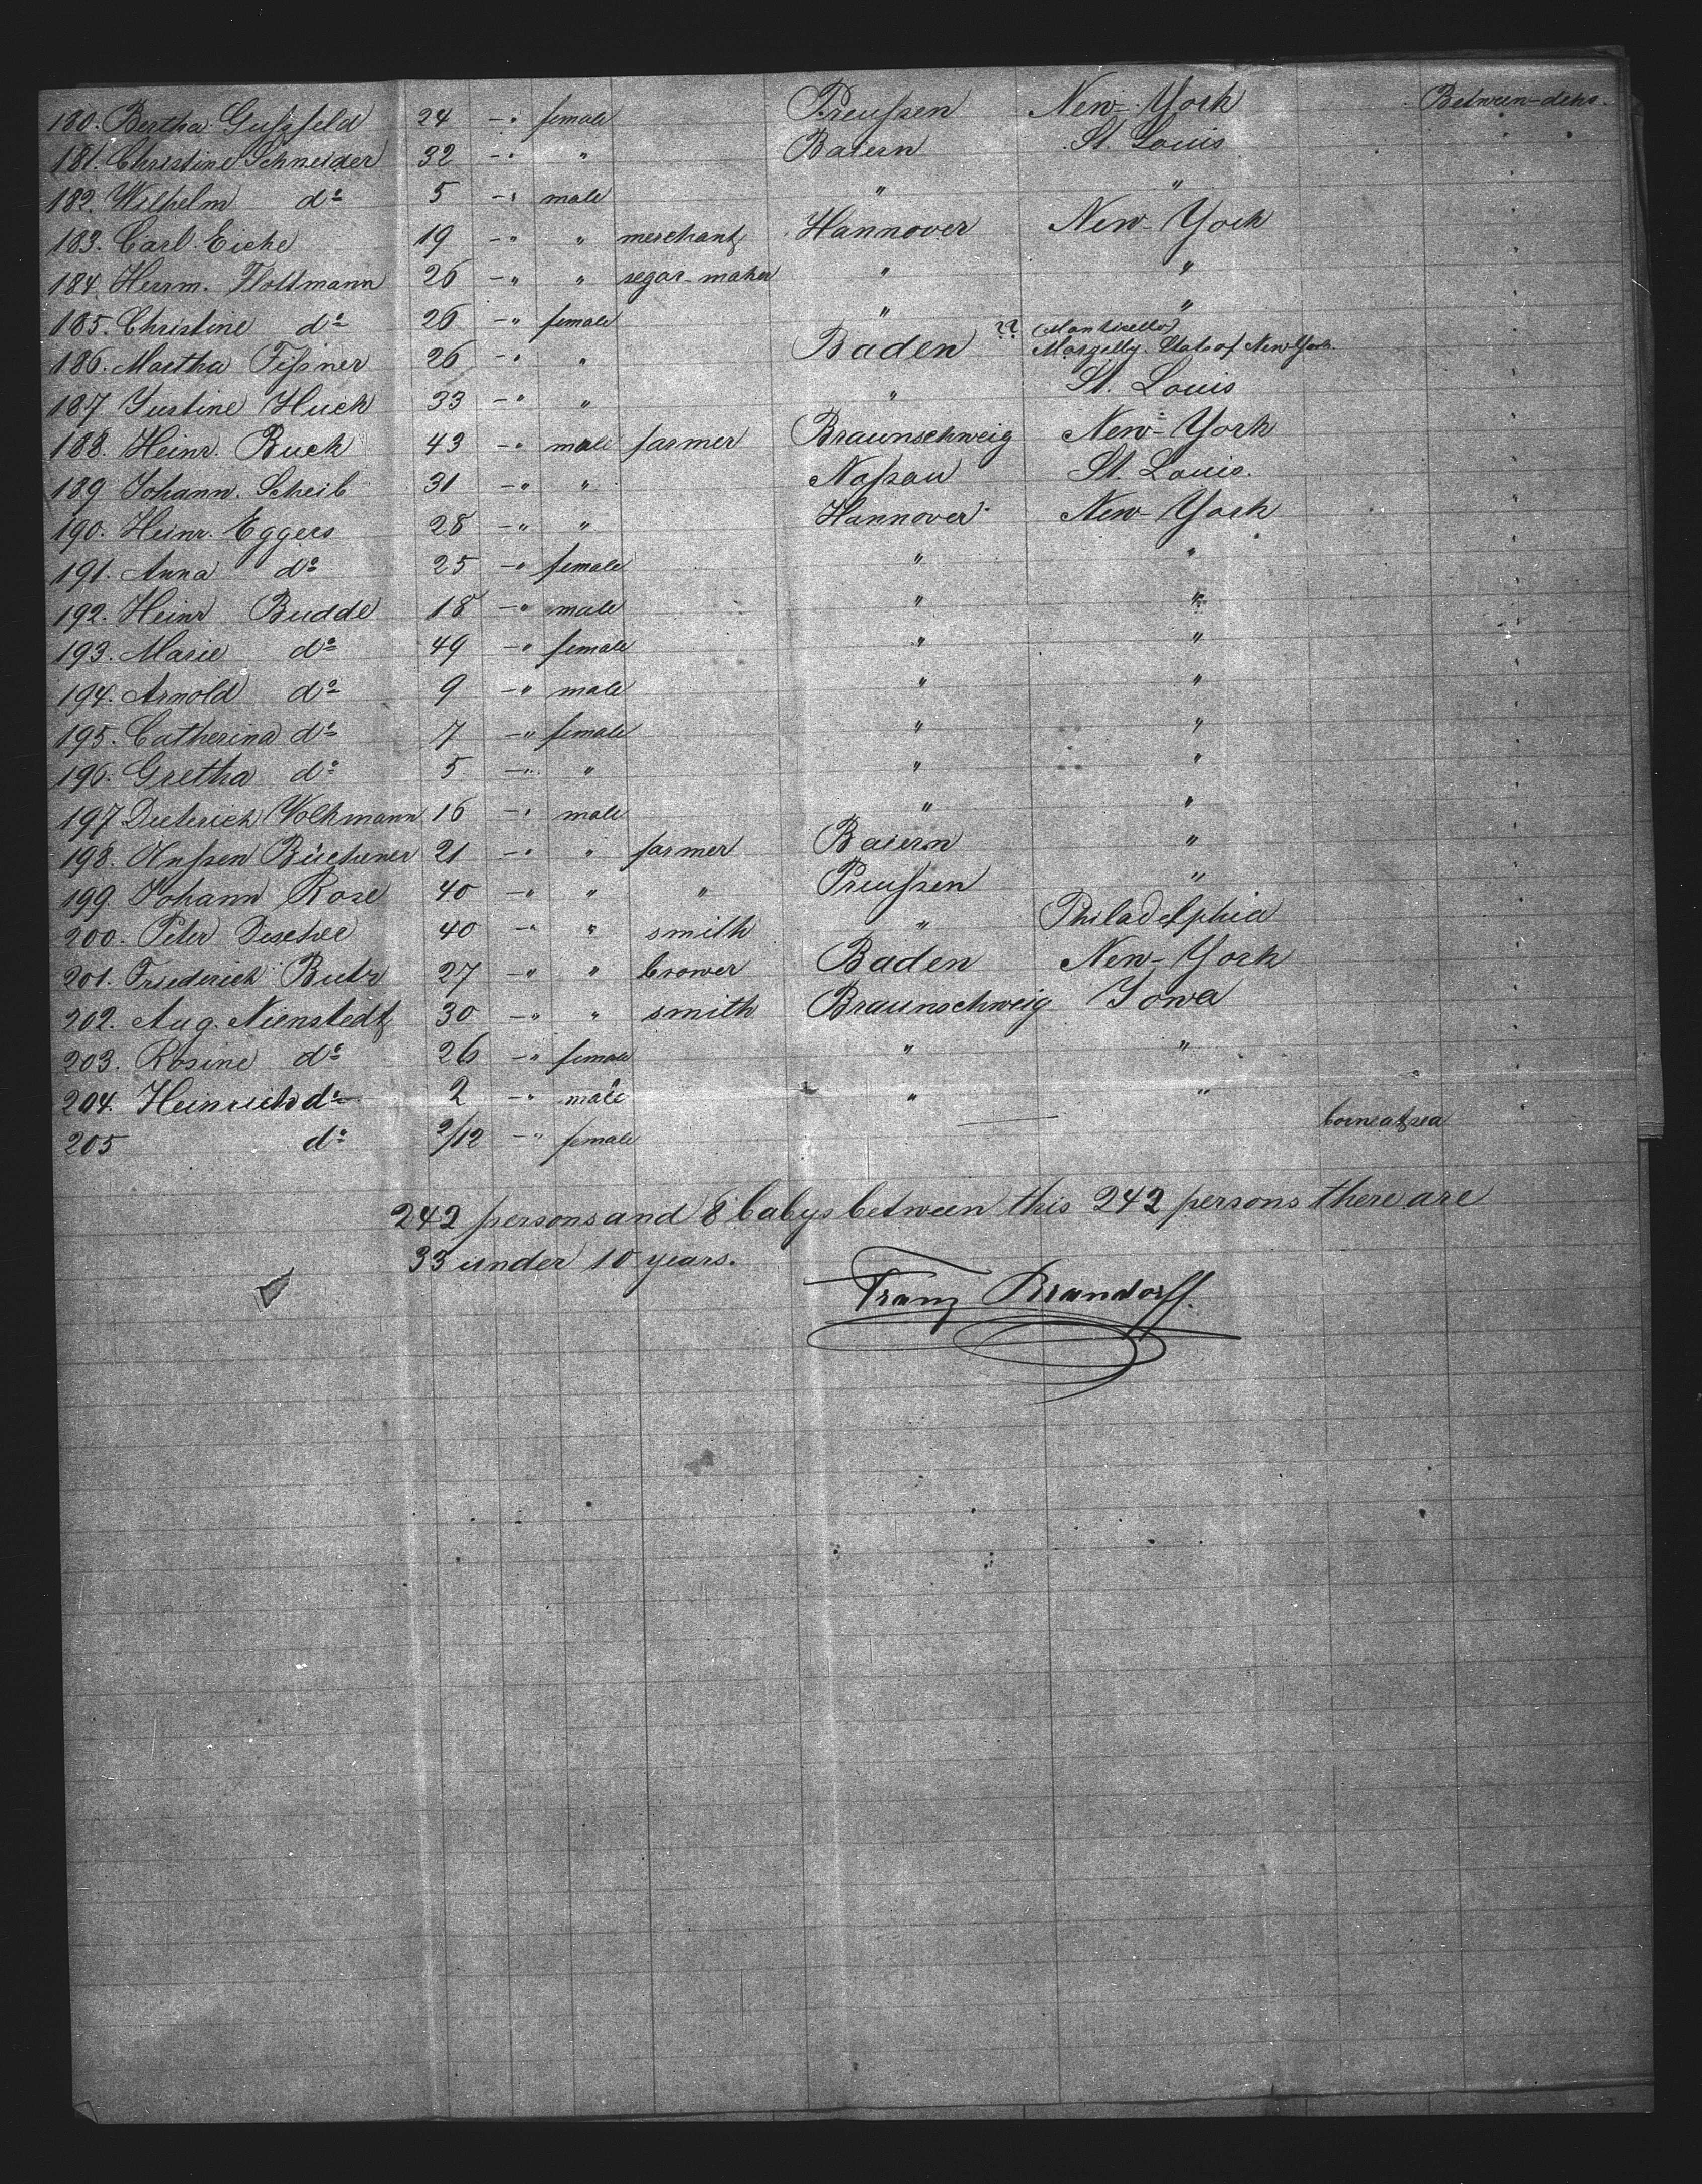 180. Bertha Gußfeld 24 -" female Preußen New-York Between-deks.
181. Christine Schneider 32 -" " Baiern St. Louis "
182. Wilhelm do 5 -" male " " "
183. Carl Eicke 19 -" " merchant Hannover New-York "
184. Herrm. Flottmann 26 -" " segar-maker " " "
185. Christine do 26 -" female " " "
186. Martha Fißner 26 -" " Baden ?? (Monticello) Margelly. State of New York. "
187 Justine Huck 33 -" " " St. Louis "
188. Heinr. Buck 43 -" male farmer Braunschweig New-York "
189 Johann. Scheib 31 -" " Naßau St. Louis. "
190. Heinr. Eggers 28 -" " Hannover New-York "
191. Anna do 25 -" female " " "
192. Heinr Budde 18 -" male " " "
193. Marie do 49 -" female " " "
194. Arnold do 9 -" male " " "
195. Catherina do 7 -" female " " "
196. Gretha do 5 -" " " " "
197 Dieterich Volkmann 16 -" male " " "
198. Büchner 21 -" " farmer Baiern " "
199 Johann Rose 40 -" " " Preußen " "
200. Peter 40 -" " smith " Philadelphia "
201. Friederich Butz 27 -" " brower Baden New-York "
202. Aug. Nienstedt 30 -" " smith Braunschweig Iowa "
203. Rosine do 26 -" female " " "
204. Heinrich do 2 -" male " " "
205 do 2/12 -" female — borne at sea
242 persons and 8 babys between this 242 persons there are
33 under 10 years.
Franz Brandorff.